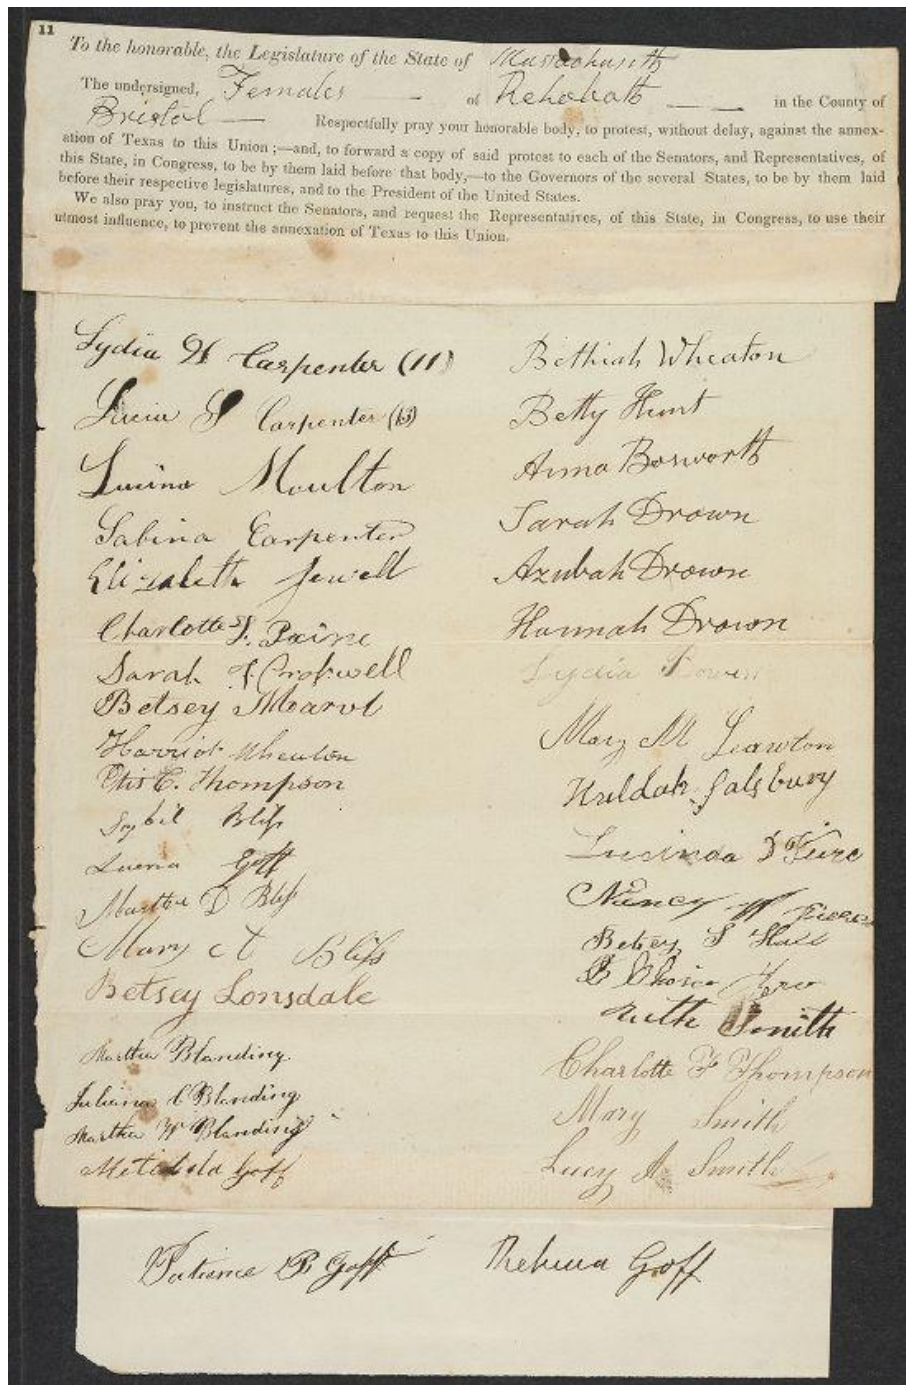 11
To the honorable, the Legislature of the State of Massachusetts
The undersigned, Females — of Rehoboth — — in the County of
Bristol — Respectfully pray your honorable body, to protest, without delay, against the annex-
ation of Texas to this Union;—and, to forward a copy of said protest to each of the Senators, and Representatives, of
this State, in Congress, to be by them laid before that body,—to the Governors of the several States, to be by them laid
before their respective legislatures, and to the President of the United States.
We also pray you, to instruct the Senators, and request the Representatives, of this State, in Congress, to use their
utmost influence, to prevent the annexation of Texas to this Union.
Lydia H Carpenter (11)
Carpenter
Moulton
Sabina Carpenter
Elizabeth Jewell
Charlotte S. Paine
Sarah
Betsey
Harriot Wheaton
Otis C. Thompson
Sybil Bliss
Goff
Martha D Bliss
Mary A Bliss
Betsey Lonsdale
Martha Blanding
Juliana C Blanding
Martha W Blanding
Goff
Bethiah Wheaton
Betty Hunt
Anna Bosworth
Sarah Drown
Azubah Drown
Hannah Drown
Lydia
Mary M Lawton
Huldah Salsbury
Lucinda
Nancy W
Betsey S Hall
Ruth Smith
Charlotte F Thompson
Mary Smith
Lucy A Smith
Patience B Goff
Goff